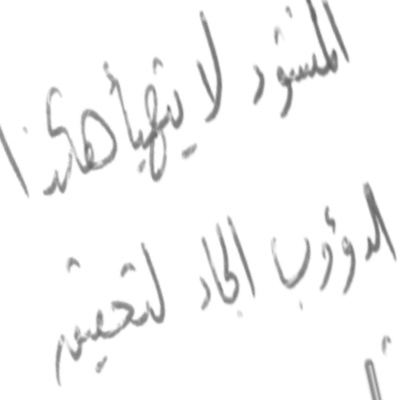 المنشود لا يتهيأ هكذا
الدؤوب الجاد لتحضير